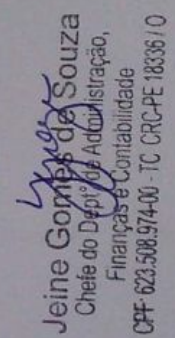 Jeine Gomes de Souza
Chefe do Deptº de Administração,
Finanças e Contabilidade
CPF: 623.508.974-00 - TC CRC-PE 18336 / O